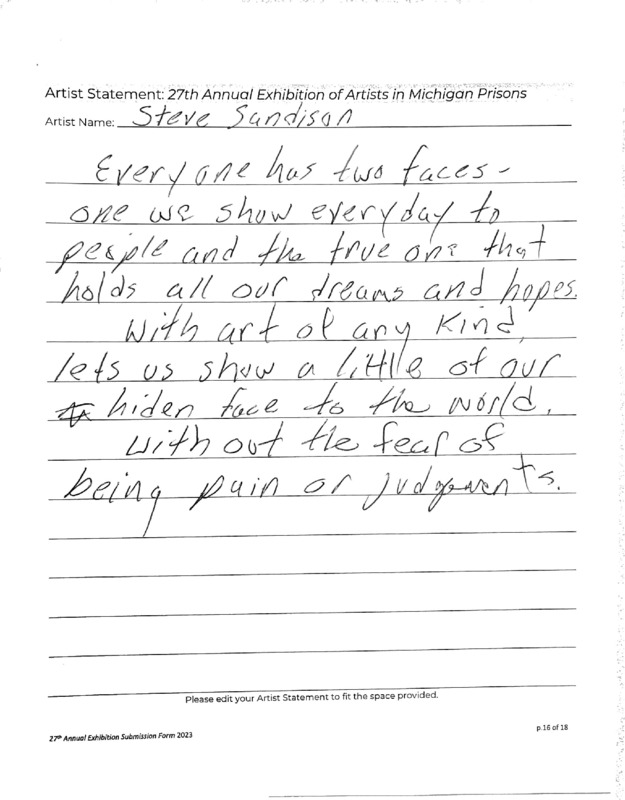 Artist Statement: 27th Annual Exhibition of Artists in Michigan Prisons
Artist Name: Steve Sandison
Everyone has two faces -
one we show everyday to
people and the true one that
holds all our dreams and hopes.
With art of any kind,
lets us show a little of our
hiden face to the world.
without the fear of
being pain or judgements.
Please edit your Artist Statement to fit the space provided.
27th Annual Exhibition Submission Form 2023
p.16 of 18